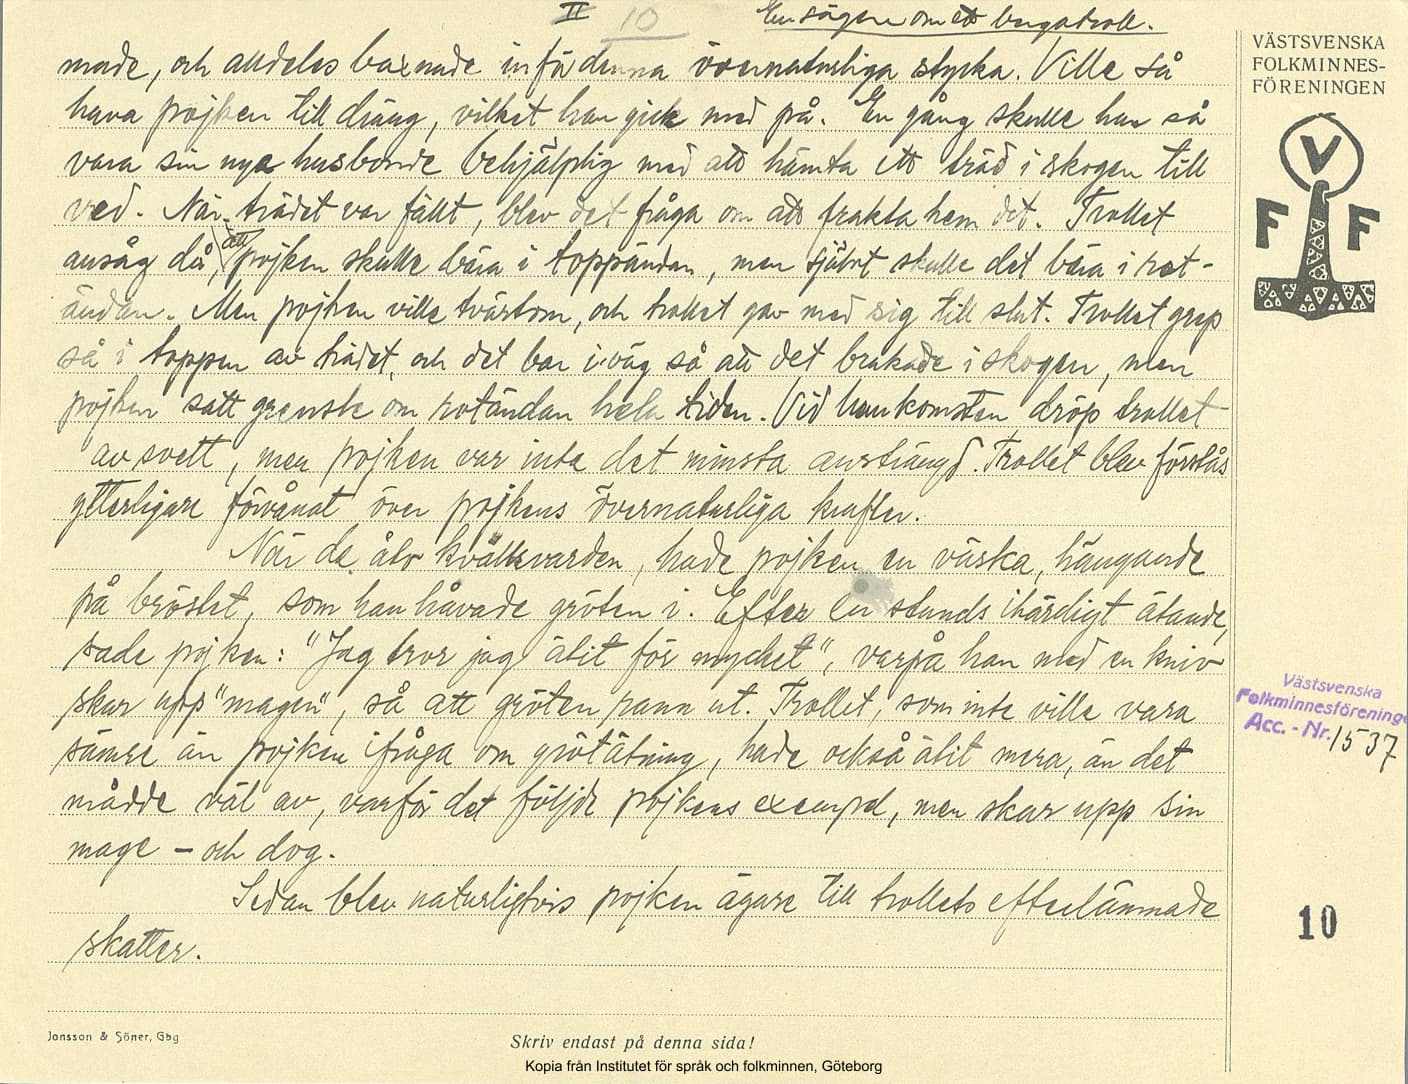 II 10 En sägen om ett bergatroll.
VÄSTSVENSKA
FOLKMINNES-
FÖRENINGEN
V
F F
made, och alldeles baxnade inför denna övernaturliga styrka. Ville så
hava pojken till dräng, vilket han gick med på. En gång skulle han så
vara sin nya husbonde behjälplig med att hämta ett träd i skogen till
ved. När trädet var fällt, blev det fråga om att frakta hem det. Trollet
ansåg då, att pojken skulle bära i toppändan, men självt skulle det bära i rot-
ändan. Men pojken ville tvärtom, och trollet gav med sig till slut. Trollet grep
så i toppen av trädet, och det bar iväg så att det brakade i skogen, men
pojken satt grensle om rotändan hela tiden. Vid hemkomsten dröp trollet
av svett, men pojken var inte det minsta ansträngd. Trollet blev förstås
ytterligare förvånat över pojkens övernaturliga krafter.
När de åto kvällsvarden, hade pojken en väska, hängande
på bröstet, som han håvade gröten i. Efter en stunds ihärdigt ätande,
sade pojken: "Jag tror jag ätit för mycket", varpå han med en kniv
skar upp "magen", så att gröten rann ut. Trollet, som inte ville vara
sämre än pojken ifråga om grötätning, hade också ätit mera, än det
mådde väl av, varför det följde pojkens exempel, men skar upp sin
mage – och dog.
Sedan blev naturligtvis pojken ägare till trollets efterlämnade
skatter.
Västsvenska
Folkminnesförening
Acc. - Nr. 1537
10
Jonsson & Söner, Gbg
Skriv endast på denna sida!
Kopia från Institutet för språk och folkminnen, Göteborg